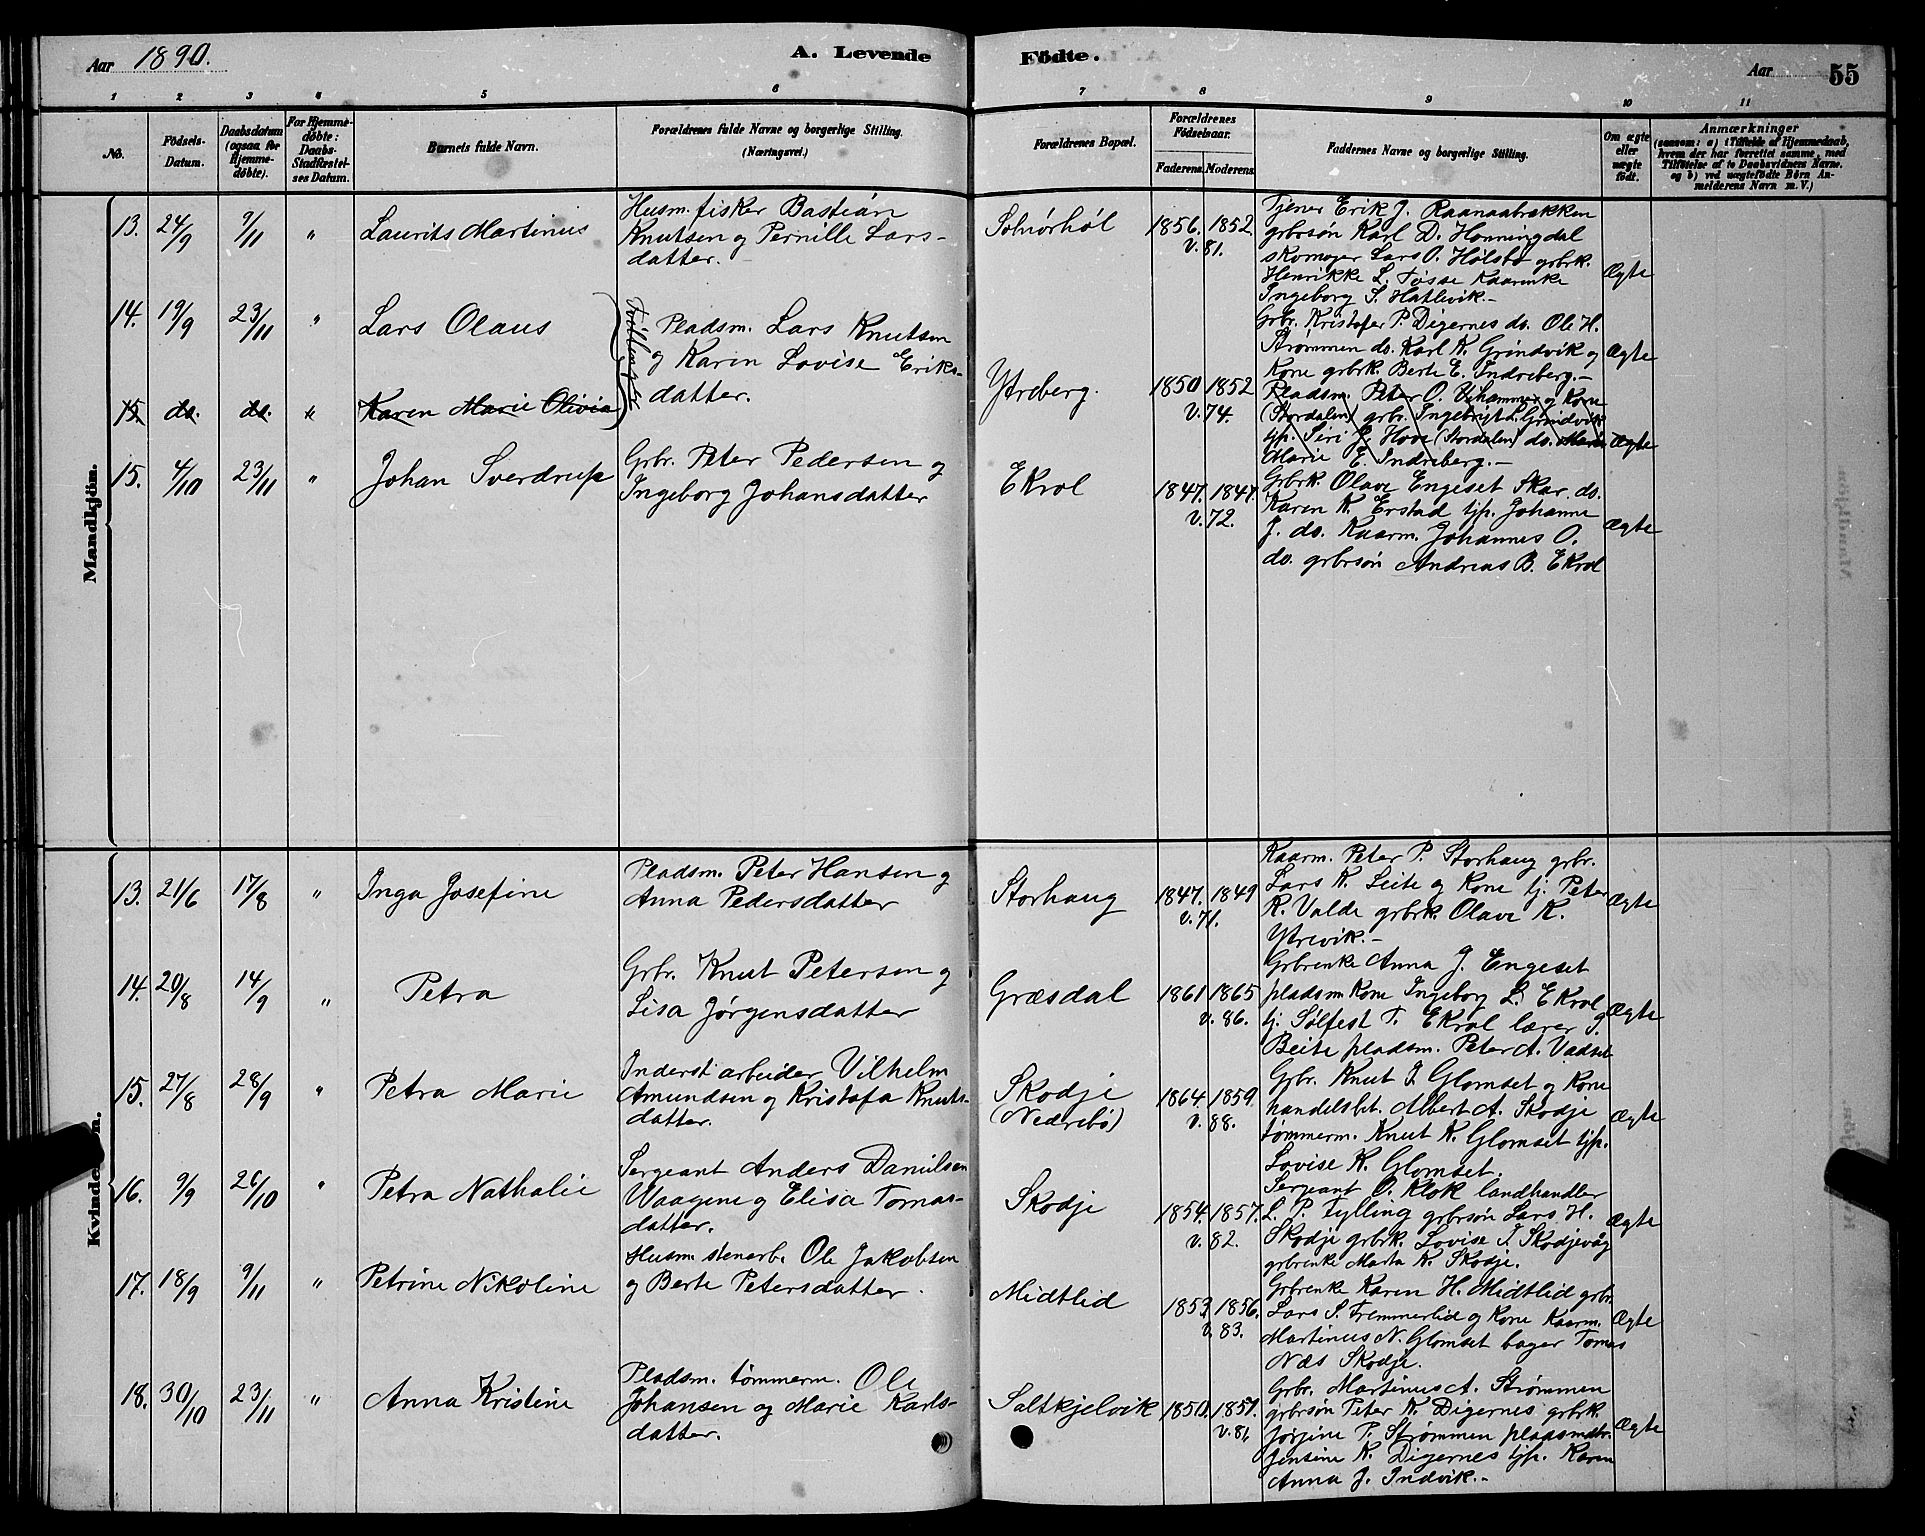 Aar 1890.
A. Levende
Födte.
Aar 55
1 2 3 4 5 6 7 8 9 10 11
No.
Födsels-Datum.
Daabsdatum (ogsaa for Hjemme-döbte).
For Hjemme-døbte: Daabs-Stadfæstel-ses Datum.
Barnets fulde Navn.
Forældrenes fulde Navne og borgerlige Stilling. (Næringsvei.)
Forældrenes Bopæl.
Forældrenes Födselsaar.
Faderens. Moderens.
Faddernes Navne og borgerlige Stilling.
Om ægte eller uægte födt.
Anmærkninger
(saasom: a) i Tilfælde af Hjemmedaab, hvem der har forrettet samme, med Tilföielse af to Daabsvidners Navne. og b) ved uægtefödte Börn An-melderens Navn m. V.)
Mandkjön.
13. 24/9 9/11 " Laurits Martinus
Husm. fisker Bastian
Knutsen og Pernille Lars-
datter.
Solnørhøl 1856. 1852
v. 81.
Tjener Erik J. Raanaabrækken
grbrsøn Karl D. Honningdal
skomager Lars O. Hølsbø grbrk.
Henrikke L. Tøsse Kaarenke
Ingeborg S. Hatlevik.-
Ægte
14. 19/9 23/11 " Lars Olaus
Tvillinger
Pladsm. Lars Knutsen
og Karen Lovise Eriks-
datter.
Ytreberg. 1850 1852
v. 74.
Grbr. Kristofer P. Digernes do. Ole H.
Strømmen do. Karl K. Grindvik og
Kone grbrk. Berte E. Indreberg.-
Ægte
15. do. do. " Karen Marie Olivia
Pladsm. Peter O. Uhammer og Kone
(Stordalen) grbr. Ingebrigt L. Grindvik
tjp. Siri P. Hove (Stordalen) do.
Marie E. Indreberg.-
Ægte
15. 4/10 23/11 " Johan Sverdrup
Grbr. Peter Pedersen og
Ingeborg Johansdatter
Ekrol 1847. 1847.
v. 72.
Grbrk Olave Engeset Skar. do.
Karen K. Erstad tjp. Johanne
J. do. Kaarm. Johannes O.
do. grbrsøn Andreas B. Ekrol
Ægte
Kvindekjön.
13. 21/6 17/8 " Inga Josefine
Pladsm. Peter Hansen og
Anna Pedersdatter
Storhaug 1847. 1849
v. 71.
Kaarm. Peter P. Storhaug grbr.
Lars K. Leite og Kone tj. Peter
R. Valde grbrk. Olave K.
Ytrevik.-
Ægte
14. 20/8 14/9 " Petra
Grbr. Knut Petersen og
Lisa Jørgensdatter
Græsdal 1861 1865
v. 86.
Grbrenke Anna J. Engeset
pladsm Kone Ingeborg L. Ekrol
tj. Sølfest T. Ekrol lærer P.
Beite pladsm. Peter A. Vadset
Ægte
15. 27/8 28/9 " Petra Marie
Inderst arbeider Vilhelm
Amundsen og Kristofa Knuts-
datter.
Skodje
(Nedrebø)
1864. 1859.
v. 88.
Grbr. Knut J. Glomset og Kone
handelsbet. Albert A. Skodje
tømmerm. Knut K. Glomset tjp.
Lovise K. Glomset.
Ægte
16. 9/9 26/10 " Petra Nathalie
Sergeant Anders Danielsen
Waagene og Elisa Tomas-
datter.
Skodje 1854. 1857.
v. 82.
Sergeant O. Klok landhandler
L. P. Fylling grbrsøn Lars H.
Skodje grbrk. Lovise T. Skodjevåg
grbrenke Marta K. Skodje.
Ægte
17. 18/9 9/11 " Petrine Nikoline
Husm stenarb. Ole Jakobsen
og Berte Petersdatter.
Midtlid 1853. 1856.
v. 83.
Grbrenke Karen H. Midtlid grbr.
Lars S. Fremmerlid og Kone Kaarm.
Martinus N. Glomset bager Tomas
Næs Skodje.
Ægte
18. 30/10 23/11 " Anna Kristine
Pladsm. tømmerm. Ole
Johansen og Marie Karls-
datter.
Saltkjelvik 1850. 1851.
v. 81
Grbr. Martinus A. Strømmen
grbrsøn Peter K. Digernes grbrk.
Jørgine P. Strømmen pladsmdtr.
Jensine K. Digernes tjp. Karen
Anna J. Indvik.-
Ægte